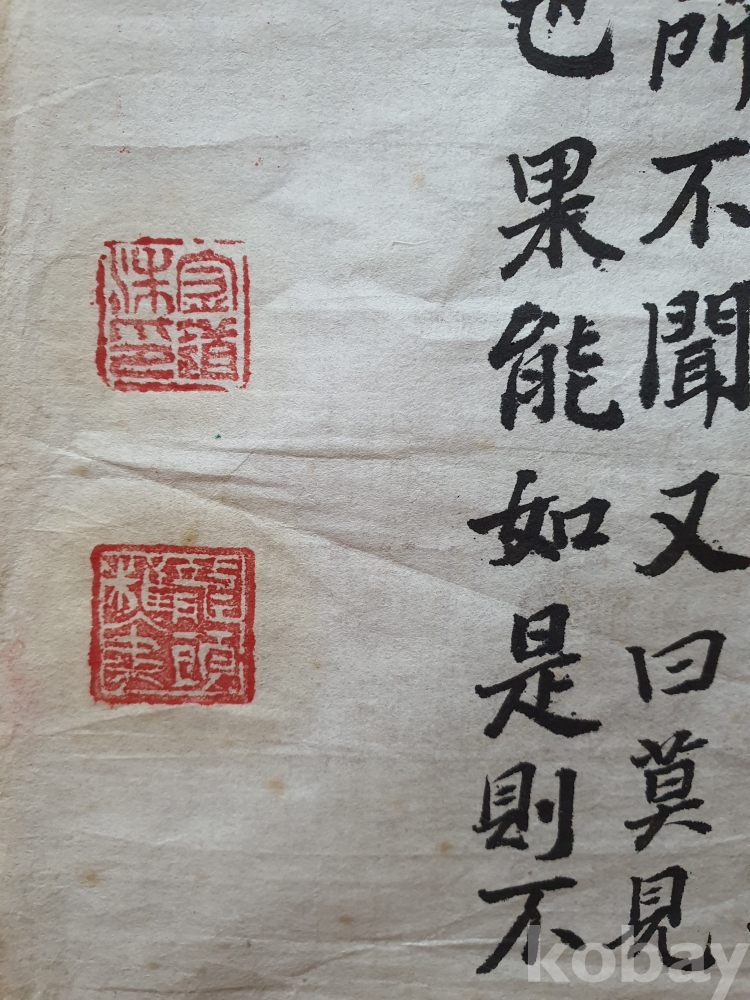 所不聞又曰莫見
也果能如是則不
kobay